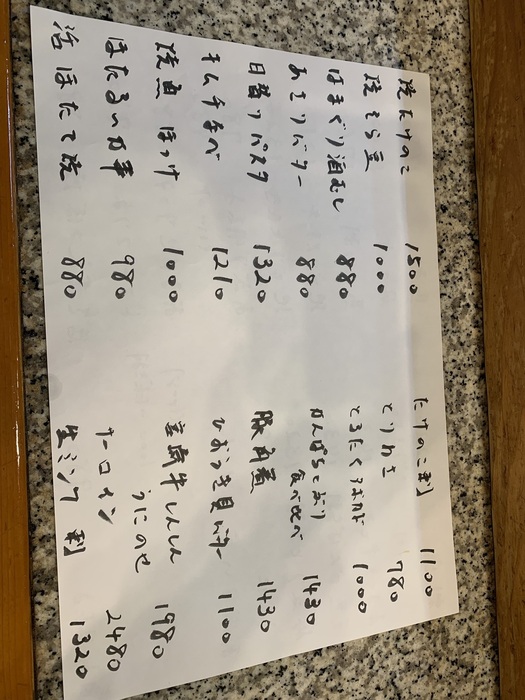 焼たけのこ 1500
焼そら豆 1000
はまぐり酒むし 880
あさりバター 880
日替りパスタ 1320
キムチなべ 1210
焼魚 ほっけ 1000
ほたるいか 980
活ほたて焼 880
たけのこ刺 1100
とりわさ 780
とろたく 1000
かんぱちとぶり
食べ比べ 1430
豚角煮 1430
ひおうぎ貝バター 1100
宮崎牛しんしん
うにのせ 1980
サーロイン 2480
生ミンク 刺 1320